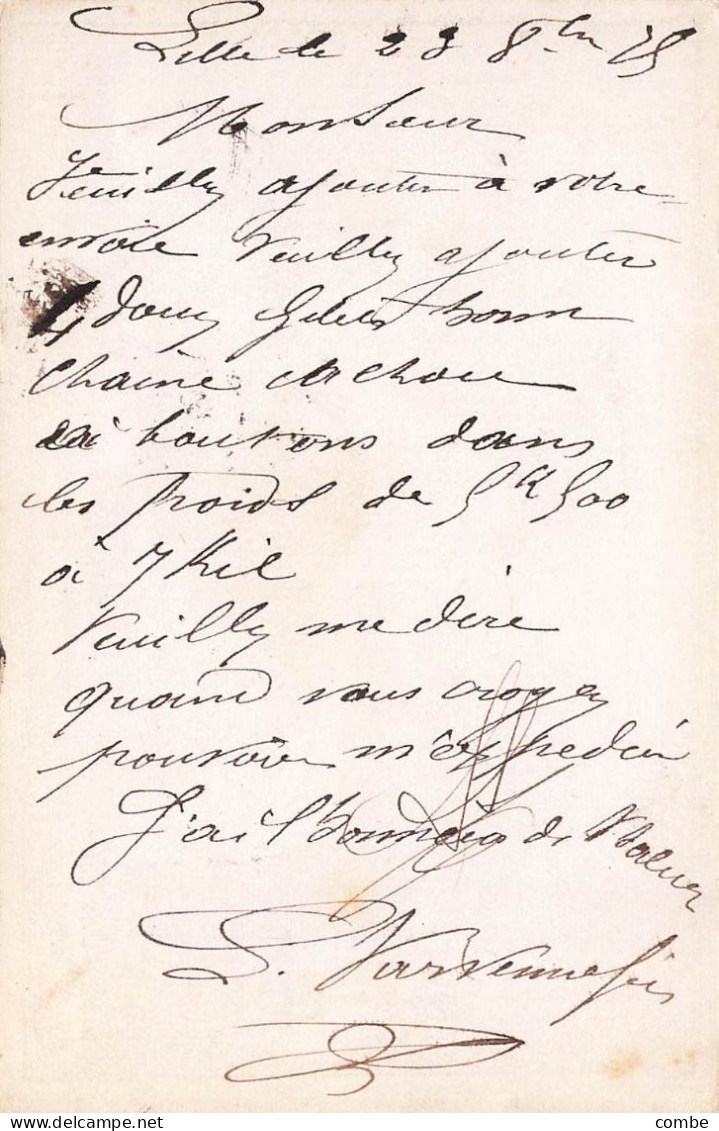 Lille le 23 8bre 75
Monsieur
Veuilly ajouter à votre
envoie Veuilly ajouter
4 douz
chaine
à boutons dans
les Poids de 5K500
à 7 Kil
Veuilly me dire
quand vous croyez
pouvoir m'expedier
J'ai l'honneur de Saluer
combe